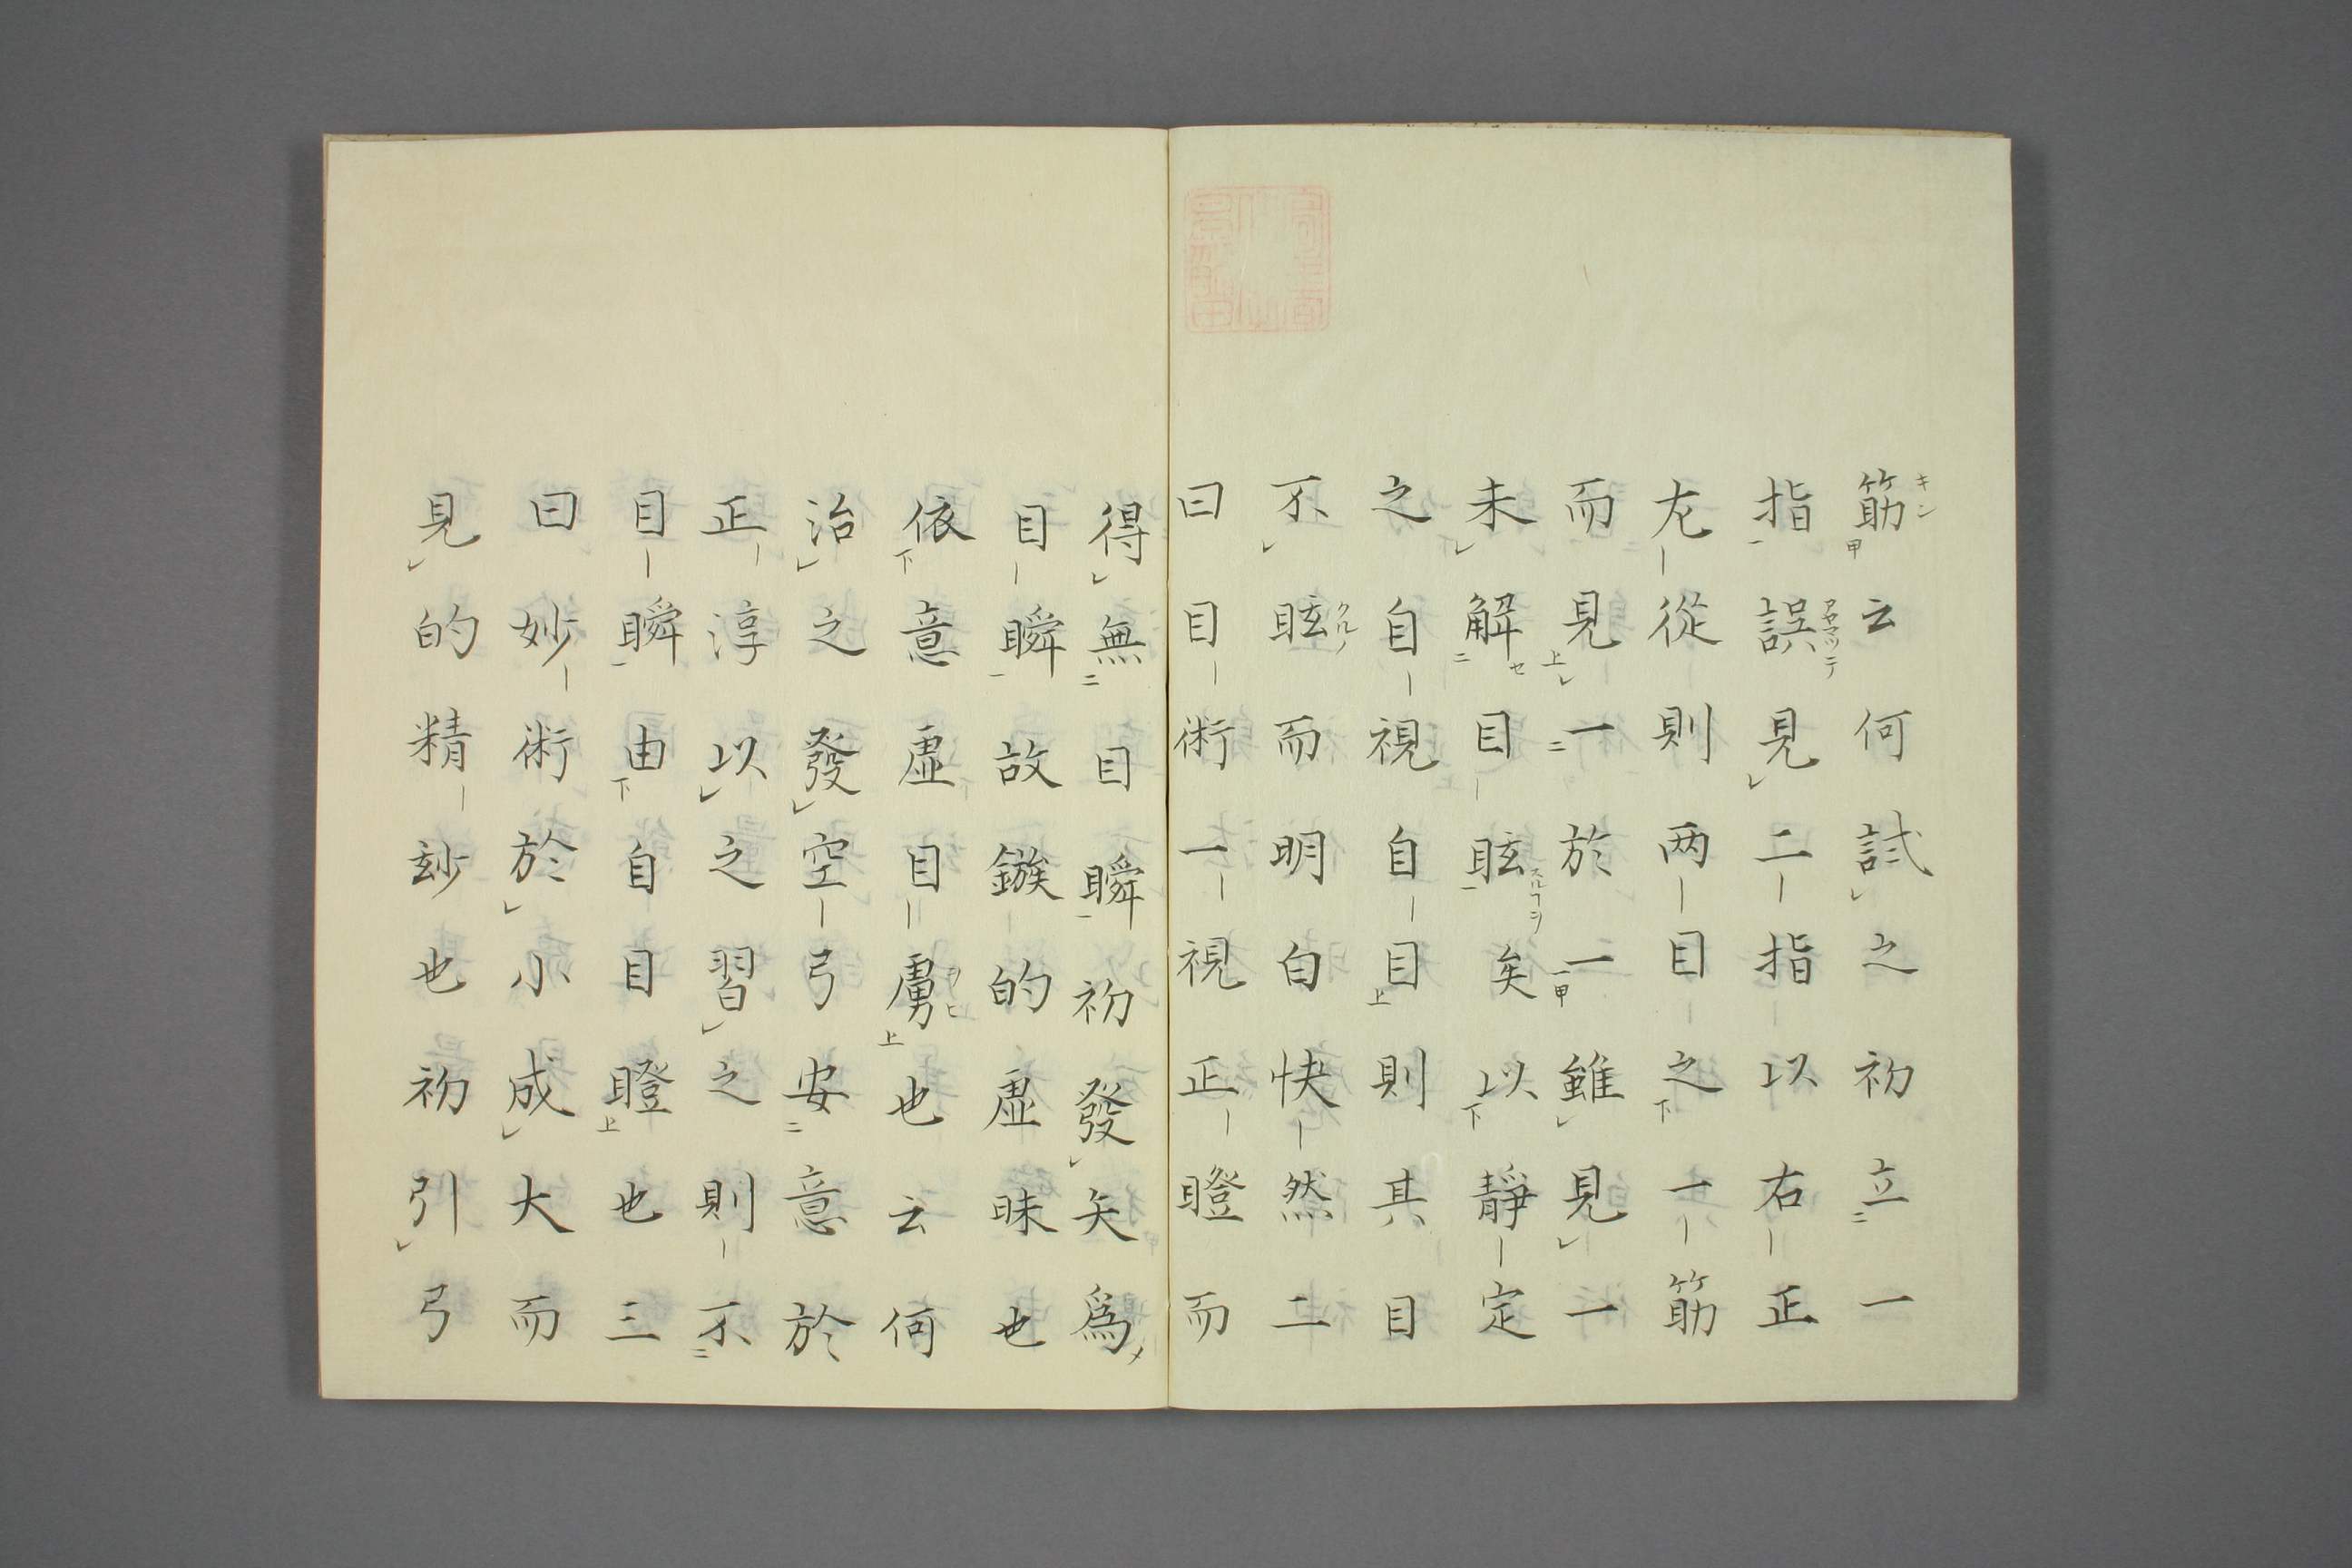 筋云何試之初立一
指誤見二指以右正
左從則両目之一筋
而見一於二雖見一
未解目眩矣以靜定
之自視自目則其目
不眩而明白快然二
曰目術一視正瞪而
得無目瞬初發矢爲
目瞬故鏃的虚昧也
依意虚目虜也云何
治之發空弓安意於
正淳以之習之則不
目瞬由自目瞪也三
曰妙術於小成大而
見的精玅也初引弓